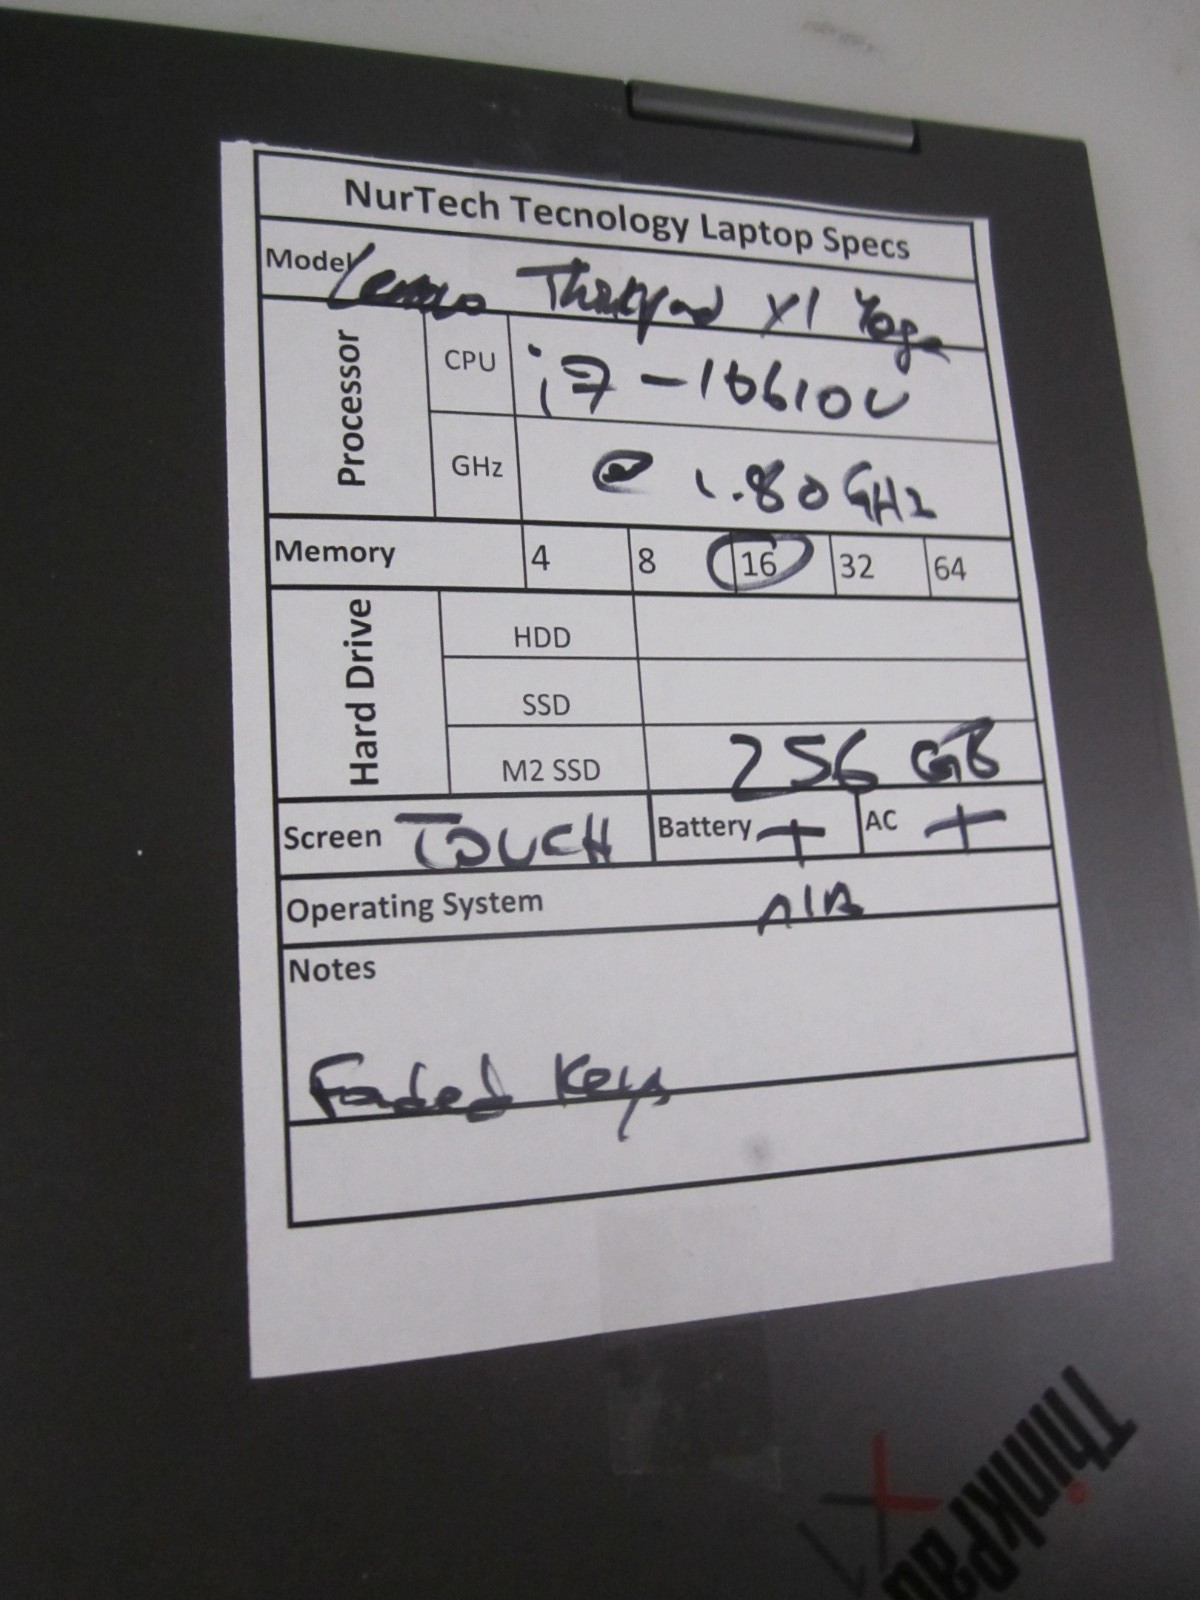 NurTech Tecnology Laptop Specs
Model Lenovo Thinkpad X1 Yoga
Processor
CPU i7-10610U
GHz @ 1.80 GHz
Memory 4 8 16 32 64
Hard Drive
HDD
SSD
M2 SSD 256 GB
Screen TOUCH Battery + AC +
Operating System N/A
Notes
Faded Keys
ThinkPad
X1